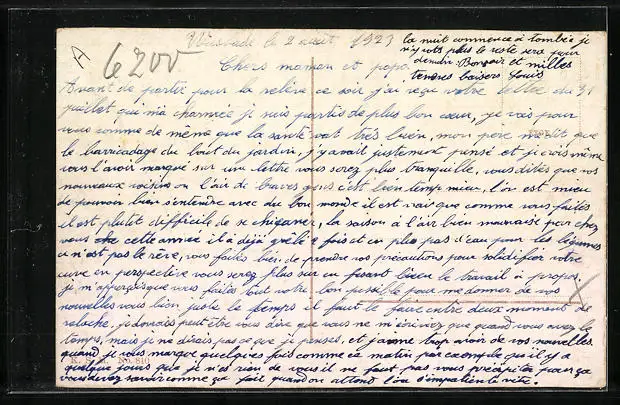 A
6200
Wiesbade le 2 août 1923
la nuit commence à tombée je
n'y vois plus le reste sera pour
demain. Bonsoir et milles
tendres baisers Louis
Chers maman et papa
Avant de partir pour la relève ce soir j'ai reçu votre lettre du 31
juillet qui m'a charmée je suis partis de plus bon cœur, je vois pour
vous comme de même que la santé vat très bien, mon père me dit que
le barricadage du bout du jardin, j'y avait justement pensé et je crois même
vous l'avoir marqué sur une lettre vous serez plus tranquille, vous dites que vos
nouveaux voisins on l'air de braves gens c'est bien temp mieu, l'on est mieu
de pouvoir bien s'entendre avec du bon monde il est vrai que comme vous faites
il est plutot difficile de se chicaner, la saison à l'air bien mauvaise pour chez
vous cette année il à déjà grêlé fois et en plus pas d'eau pour les légumes
ce n'est pas le rêve, vous faites bien de prendre vos précautions pour solidifier votre
cuve en perspective vous serez plus sur en fesant bien le travail à propos,
je m'apperçois que vous faites tout votre bon possible pour me donner de vos
nouvelles vous bien juste le temps il faut le faire entre deux moment de
relache, je devrais peut être vous dire que vous ne m'écriviez que quand vous avez le
temps, mais je ne dirais pas ce que je penses, et j'aime trop avoir de vos nouvelles
quand je vous marque quelques fois comme ce matin par exemple qu'il y a
quelque jours que je n'ai rien de vous il ne faut pas vous précipiter pour ça
vous devez savoir comme ça fait quand on attend l'on s'impatiente vite.
K. S. No. 810
X